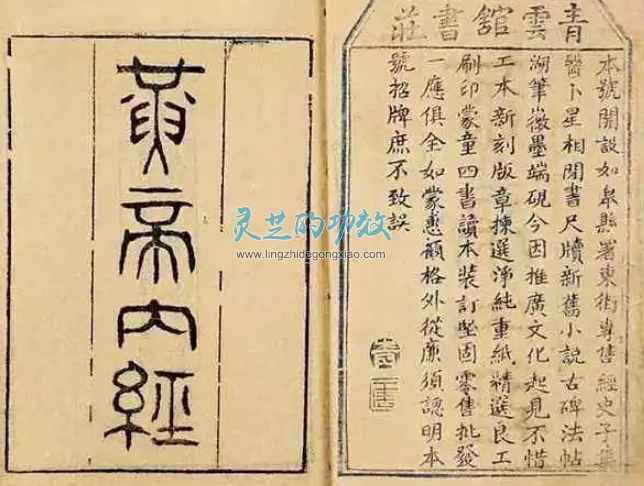 青雲舘書莊
本號開設如皋縣署東街專售經史子集
醫卜星相閒書尺牘新舊小說古碑法帖
湖筆徽墨端硯今因推廣文化起見不惜
工本新刻版章揀選淨純重紙精選良工
刷印蒙童四書讀本裝訂堅固零售批發
一應俱全如蒙惠顧格外從廉須認明本
號招牌庶不致誤
黃帝內經
灵芝的功效
www.lingzhidegongxiao.com